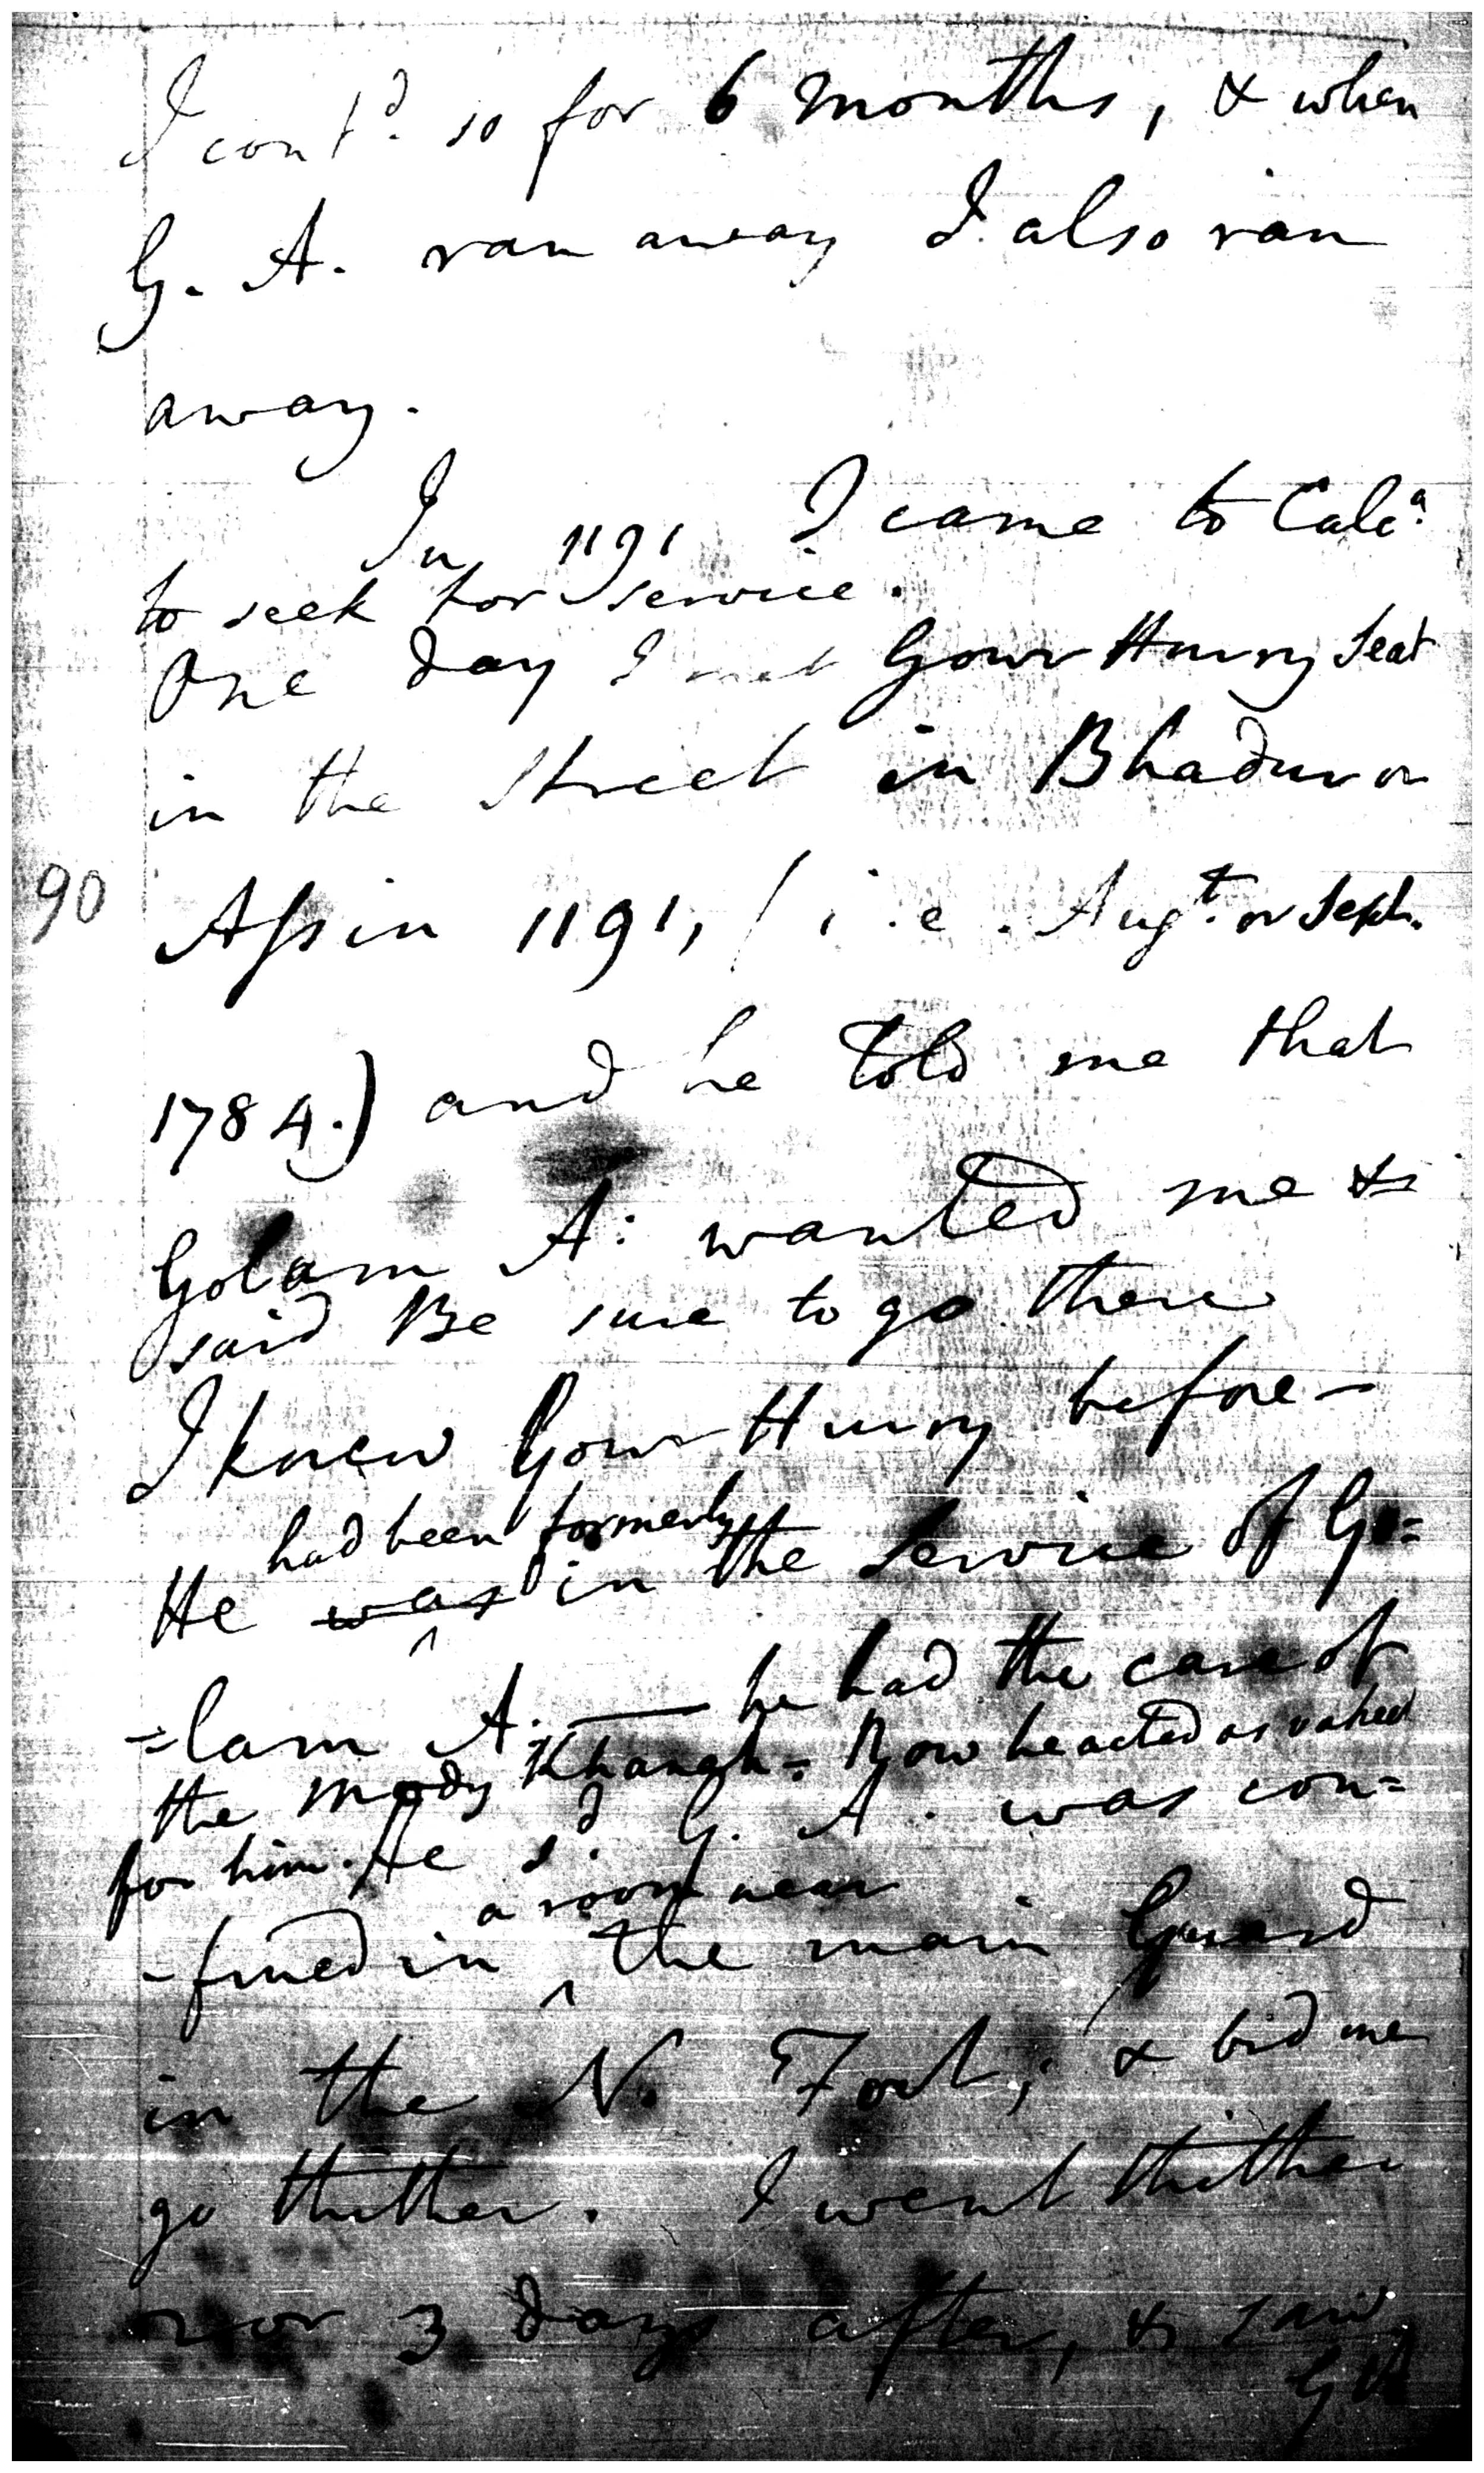 I cont.d so for 6 months, & when
G. A. ran away I also ran
away.
In 1191 I came to Calc.a
to seek for service.
One day I met Gour Hurry Seat
in the Street in Bhadur or
90
Assin 1191, (i.e. Aug.t or Sept.
1784.) and he told me that
Golam A: wanted me &
said Be sure to go there
I knew Gour Hurry before—
had been formerly
He was in the Service of Go=
=lam A. — he had the care of
the Mody Khanah= Now he acted as vakeel
for him. He s.d G. A. was con=
a room near
-fined in ^ the main Guard
in the N. Fort; & bid me
go thither. I went thither
2 or 3 days after, & saw
G A